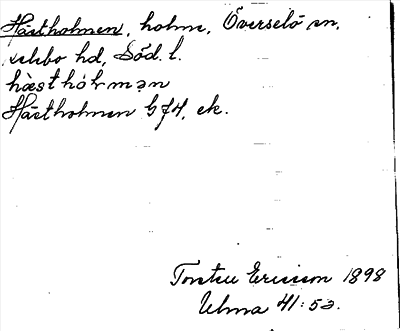 Hästholmen, holme, Överselö sn,
selebo hd, Söd. l.
hæsthòlmən
Hästholmen GJ4, ek.
Torsten Ericsson 1898
Ulma 41:53.